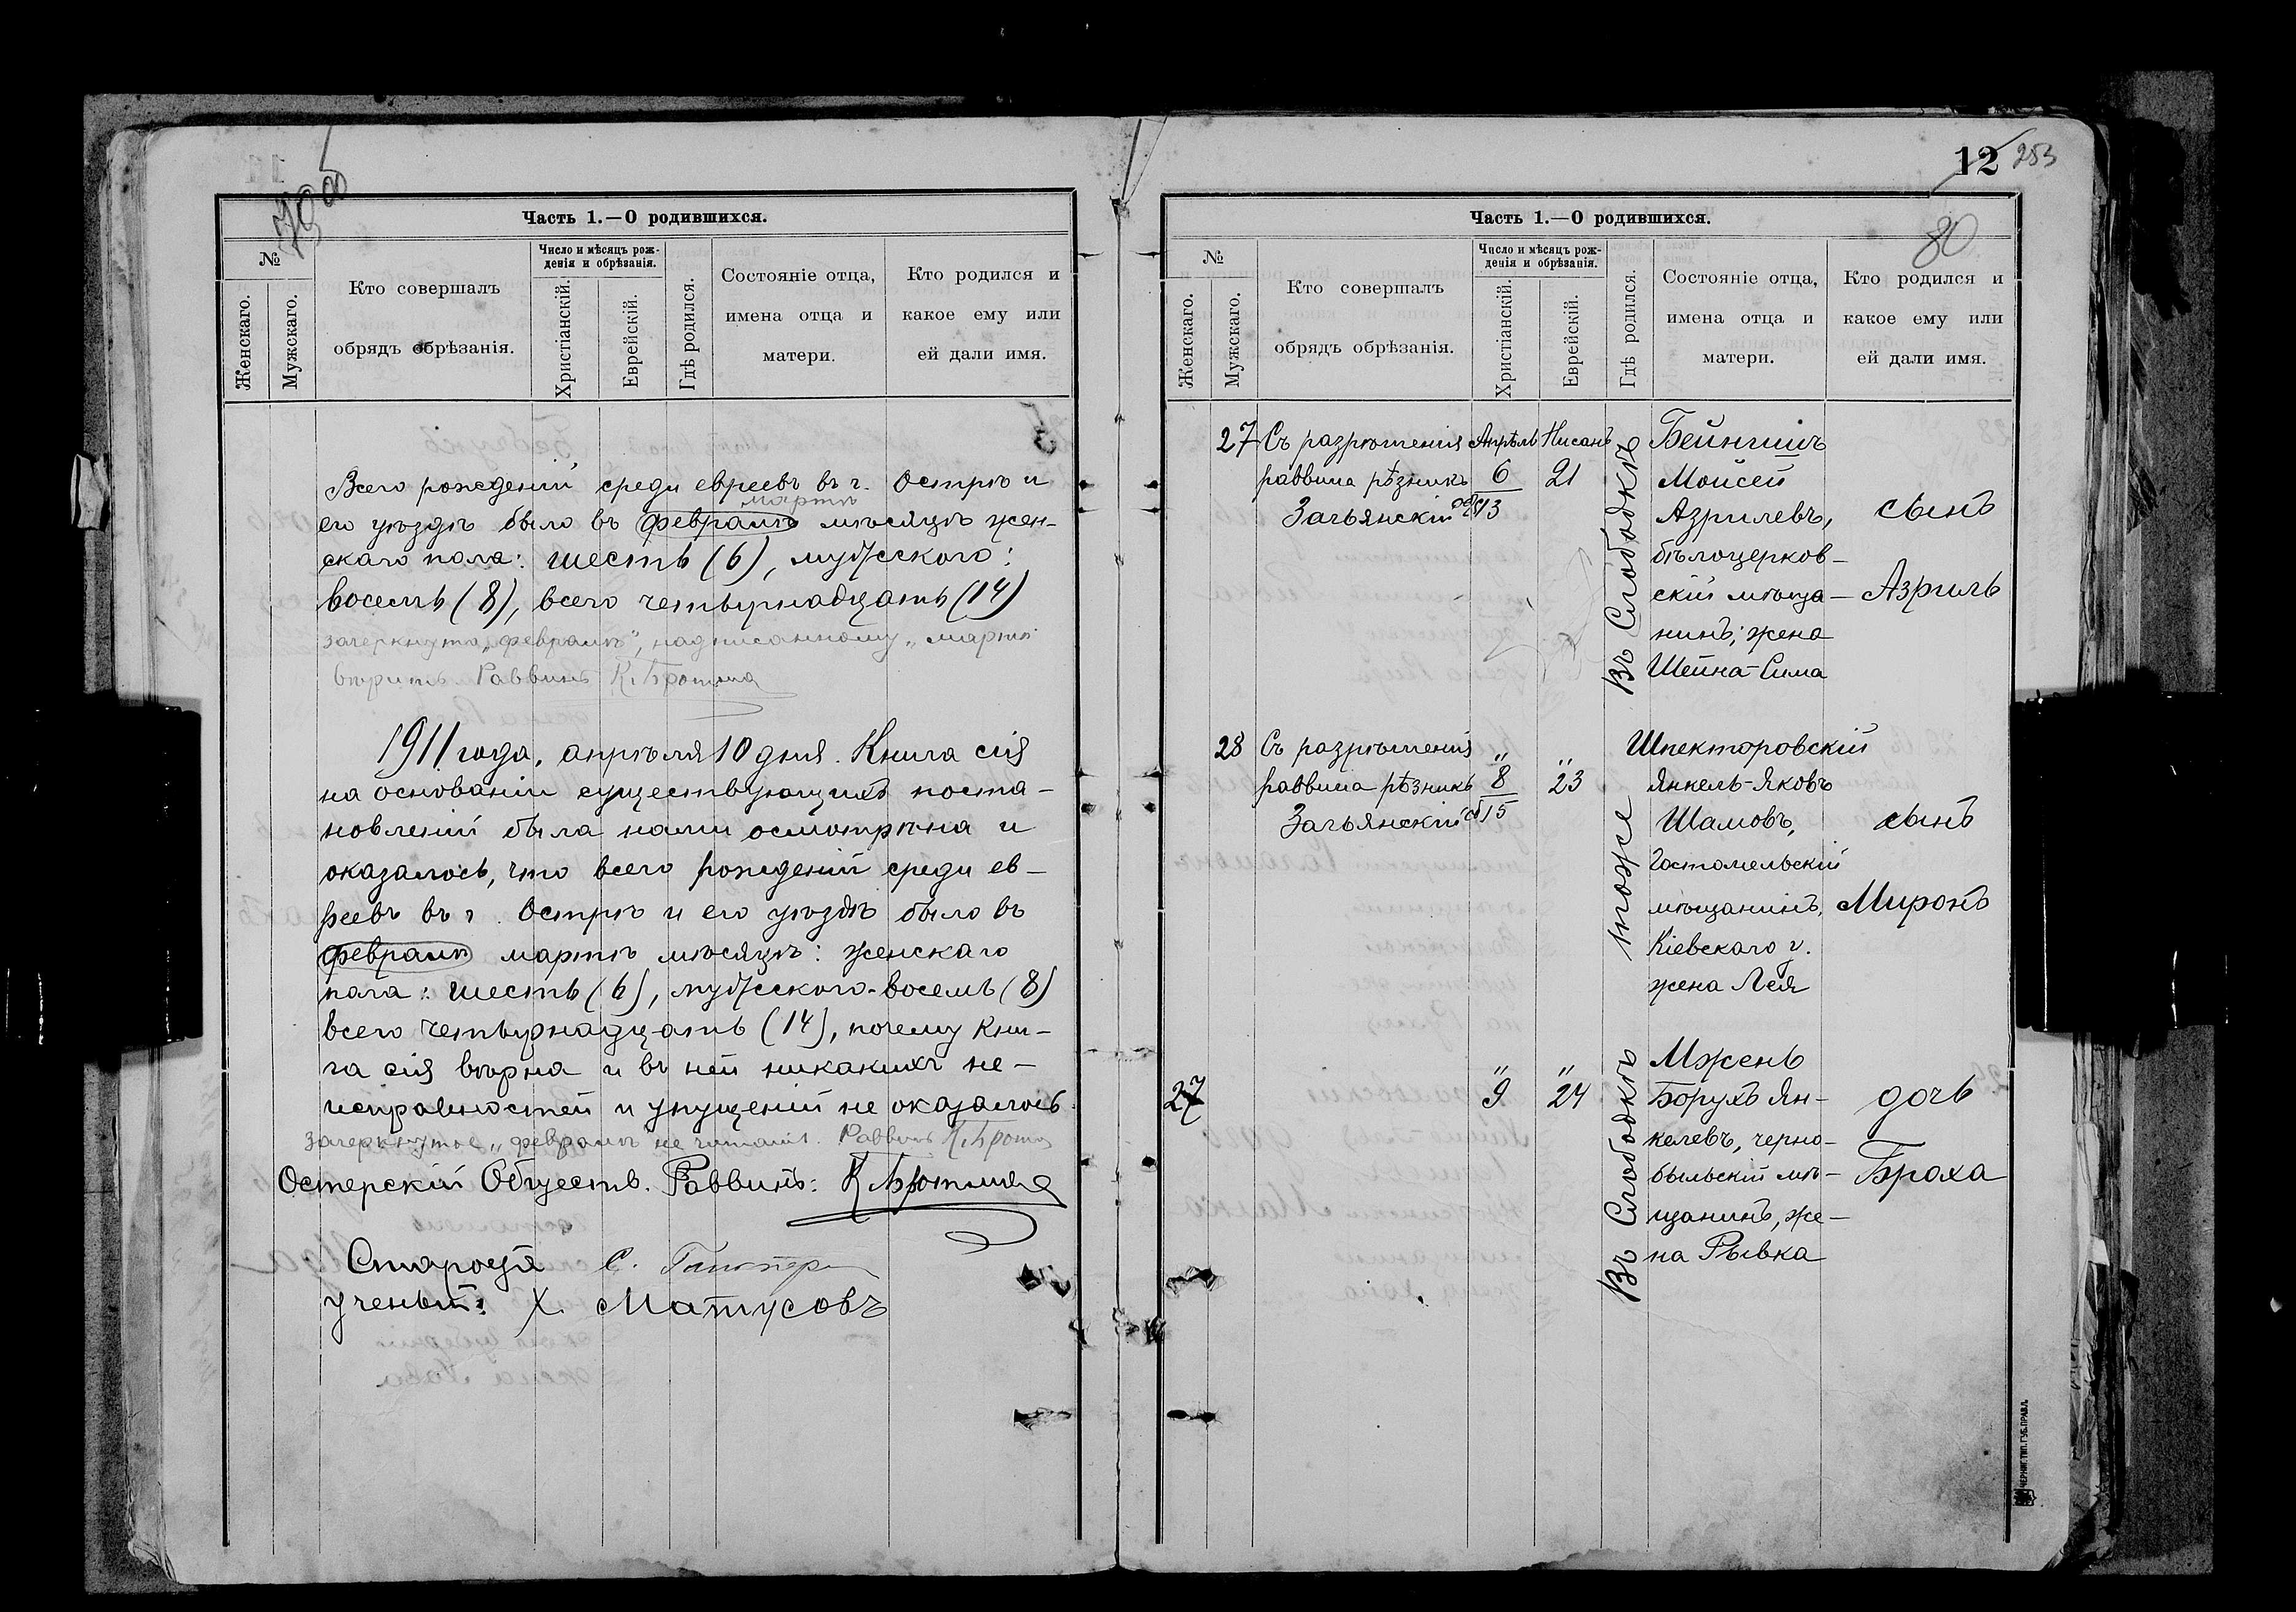 Часть 1.—О родившихся.
№
Женскаго.
Мужскаго.
Кто совершалъ
обрядъ обрѣзанія.
Число и мѣсяцъ рож-
денія и обрѣзанія.
Христіанскій.
Еврейскій.
Гдѣ родился.
Состояніе отца,
имена отца и
матери.
Кто родился и
какое ему или
ей дали имя.
Всего рожденій среди евреевъ въ г. Острѣ и
мартѣ
его уѣздѣ было въ февралѣ мѣсяцѣ жен-
скаго пола: шесть (6), мужского:
восемь (8), всего четырнадцать (14)
зачеркнуто „февралѣ“, надписанному „мартѣ
вѣрить. Раввинъ
1911 года, апрѣля 10 дня. Книга сія
на основаніи существующихъ поста-
новленій была нами осмотрѣна и
оказалось, что всего рожденій среди ев-
реевъ въ г. Острѣ и его уѣздѣ было въ
февралѣ мартѣ мѣсяцѣ: женскаго
пола: шесть (6), мужского-восемь (8)
всего четырнадцать (14), почему кни-
га сія вѣрна и въ ней никакихъ не-
исправностей и упущеній не оказалось.
зачеркнутое „февралѣ“ не читать. Раввинъ
Остерскій Обществ. Раввинъ:
Староста С.
Ученый: Х. Матусовъ
12 253
80
Часть 1.—О родившихся.
№
Женскаго.
Мужскаго.
Кто совершалъ
обрядъ обрѣзанія.
Число и мѣсяцъ рож-
денія и обрѣзанія.
Христіанскій.
Еврейскій.
Гдѣ родился.
Состояніе отца,
имена отца и
матери.
Кто родился и
какое ему или
ей дали имя.
27 Съ разрѣшенія Апрѣль Нисанъ Бейнишъ
раввина рѣзникъ 6 21 Мойсей
Загьянскій обр 13 Азрилевъ, сынъ
Въ Слободкѣ
бѣлоцерков-
скій мѣща- Азриль
нинъ; жена
Шейна-Сима
28 Съ разрѣшенія „ „ Шпекторовскій
раввина рѣзникъ 8 23 Янкель-Яковъ
Загьянскій об 15 Шамовъ, сынъ
тоже
Гостомельскій
мѣщанинъ, Миронъ
Кіевскаго у.
жена Лея
27 „ „ Мжень
9 24 Борухъ Ян- дочь
Въ Слободкѣ
келевъ, черно-
быльскій мѣ- Броха
щанинъ, же-
на Рывка
ЧЕРНИГ. ТИП. ГУБ. ПРАВЛ.